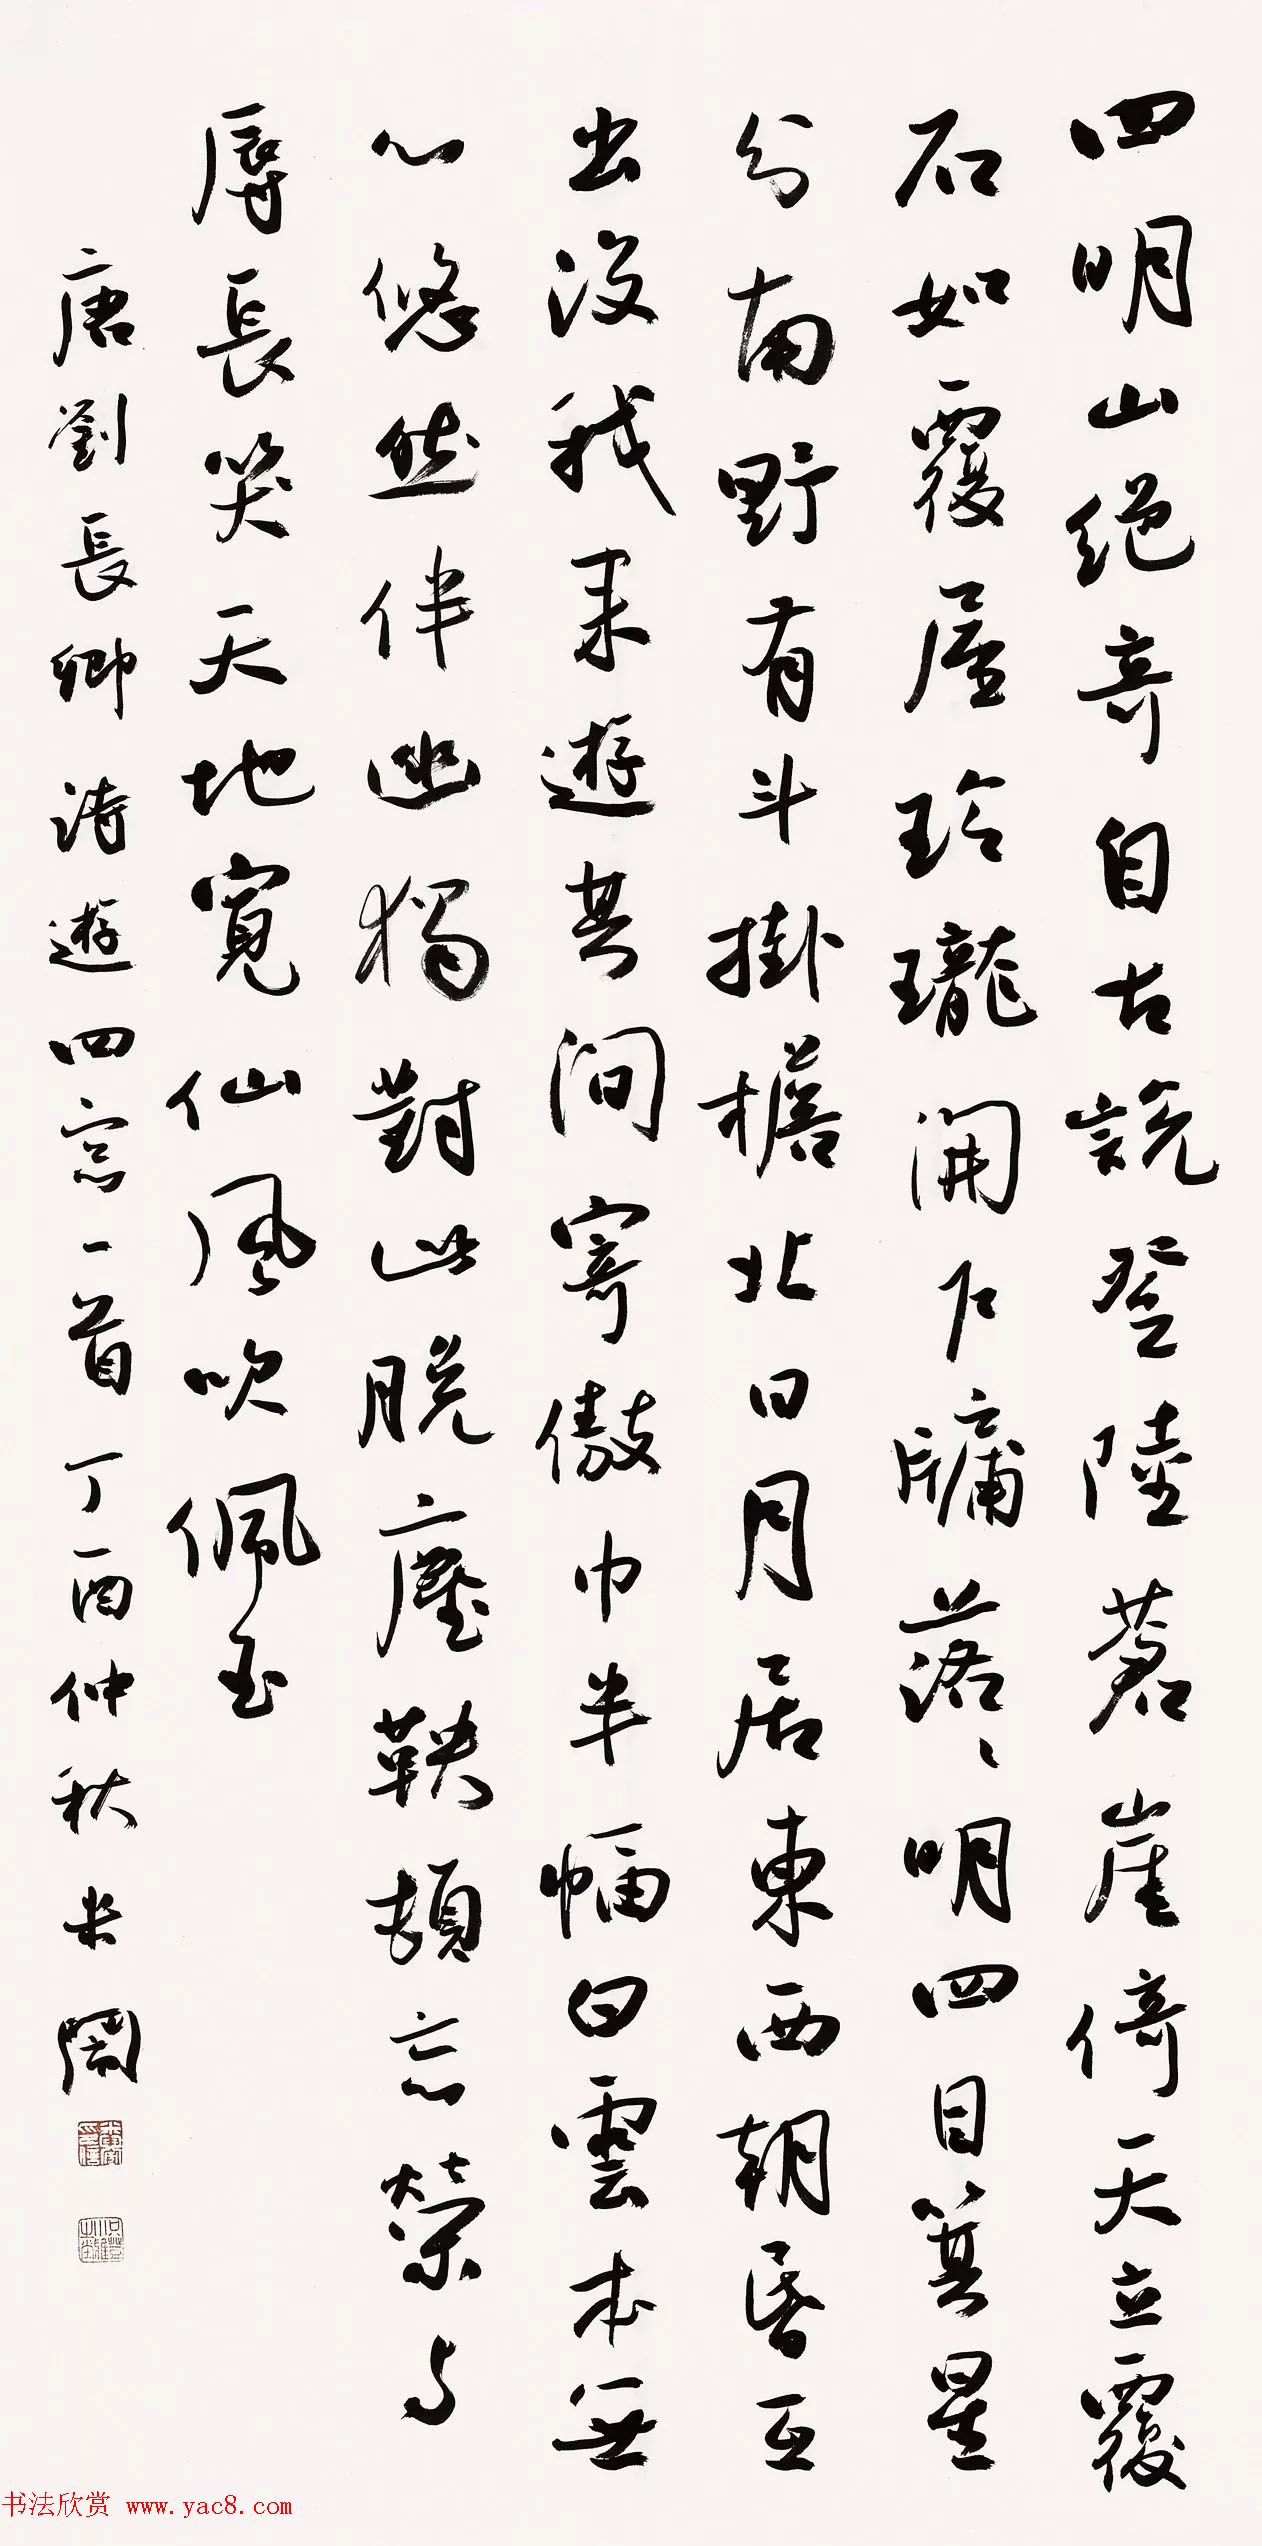 四明山絕奇自古說登陸蒼崖倚天立覆
石如覆屋玲瓏開戶牖落〻明四目箕星
分南野有斗掛檐北日月居東西朝昏互
出没我来遊其間寄傲巾半幅白雲本無
心悠然伴幽獨對此脫塵鞅頓忘榮与
辱長笑天地寬仙風吹佩玉
唐劉長卿詩遊四窓一首丁酉仲秋米閙
书法欣赏 www.yac8.com